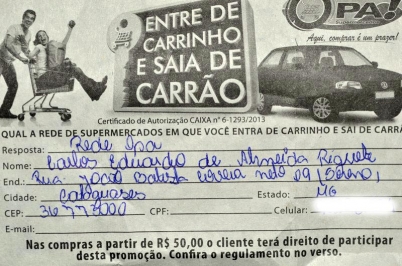 ENTRE DE
CARRINHO
E SAIA DE
CARRÃO
OPA!
Supermercados
Aqui, comprar é um prazer!
Certificado de Autorização CAIXA nº 6-1293/2013
QUAL A REDE DE SUPERMERCADOS EM QUE VOCÊ ENTRA DE CARRINHO E SAI DE CARRÃO
Resposta: Rede Opa
Nome: Carlos Eduardo de Almeida
End.: Rua Batista Correia neto 09
Cidade: Cataguases Estado: MG
CEP: 36775000 CPF: Celular:
E-mail:
Nas compras a partir de R$ 50,00 o cliente terá direito de participar
desta promoção. Confira o regulamento no verso.